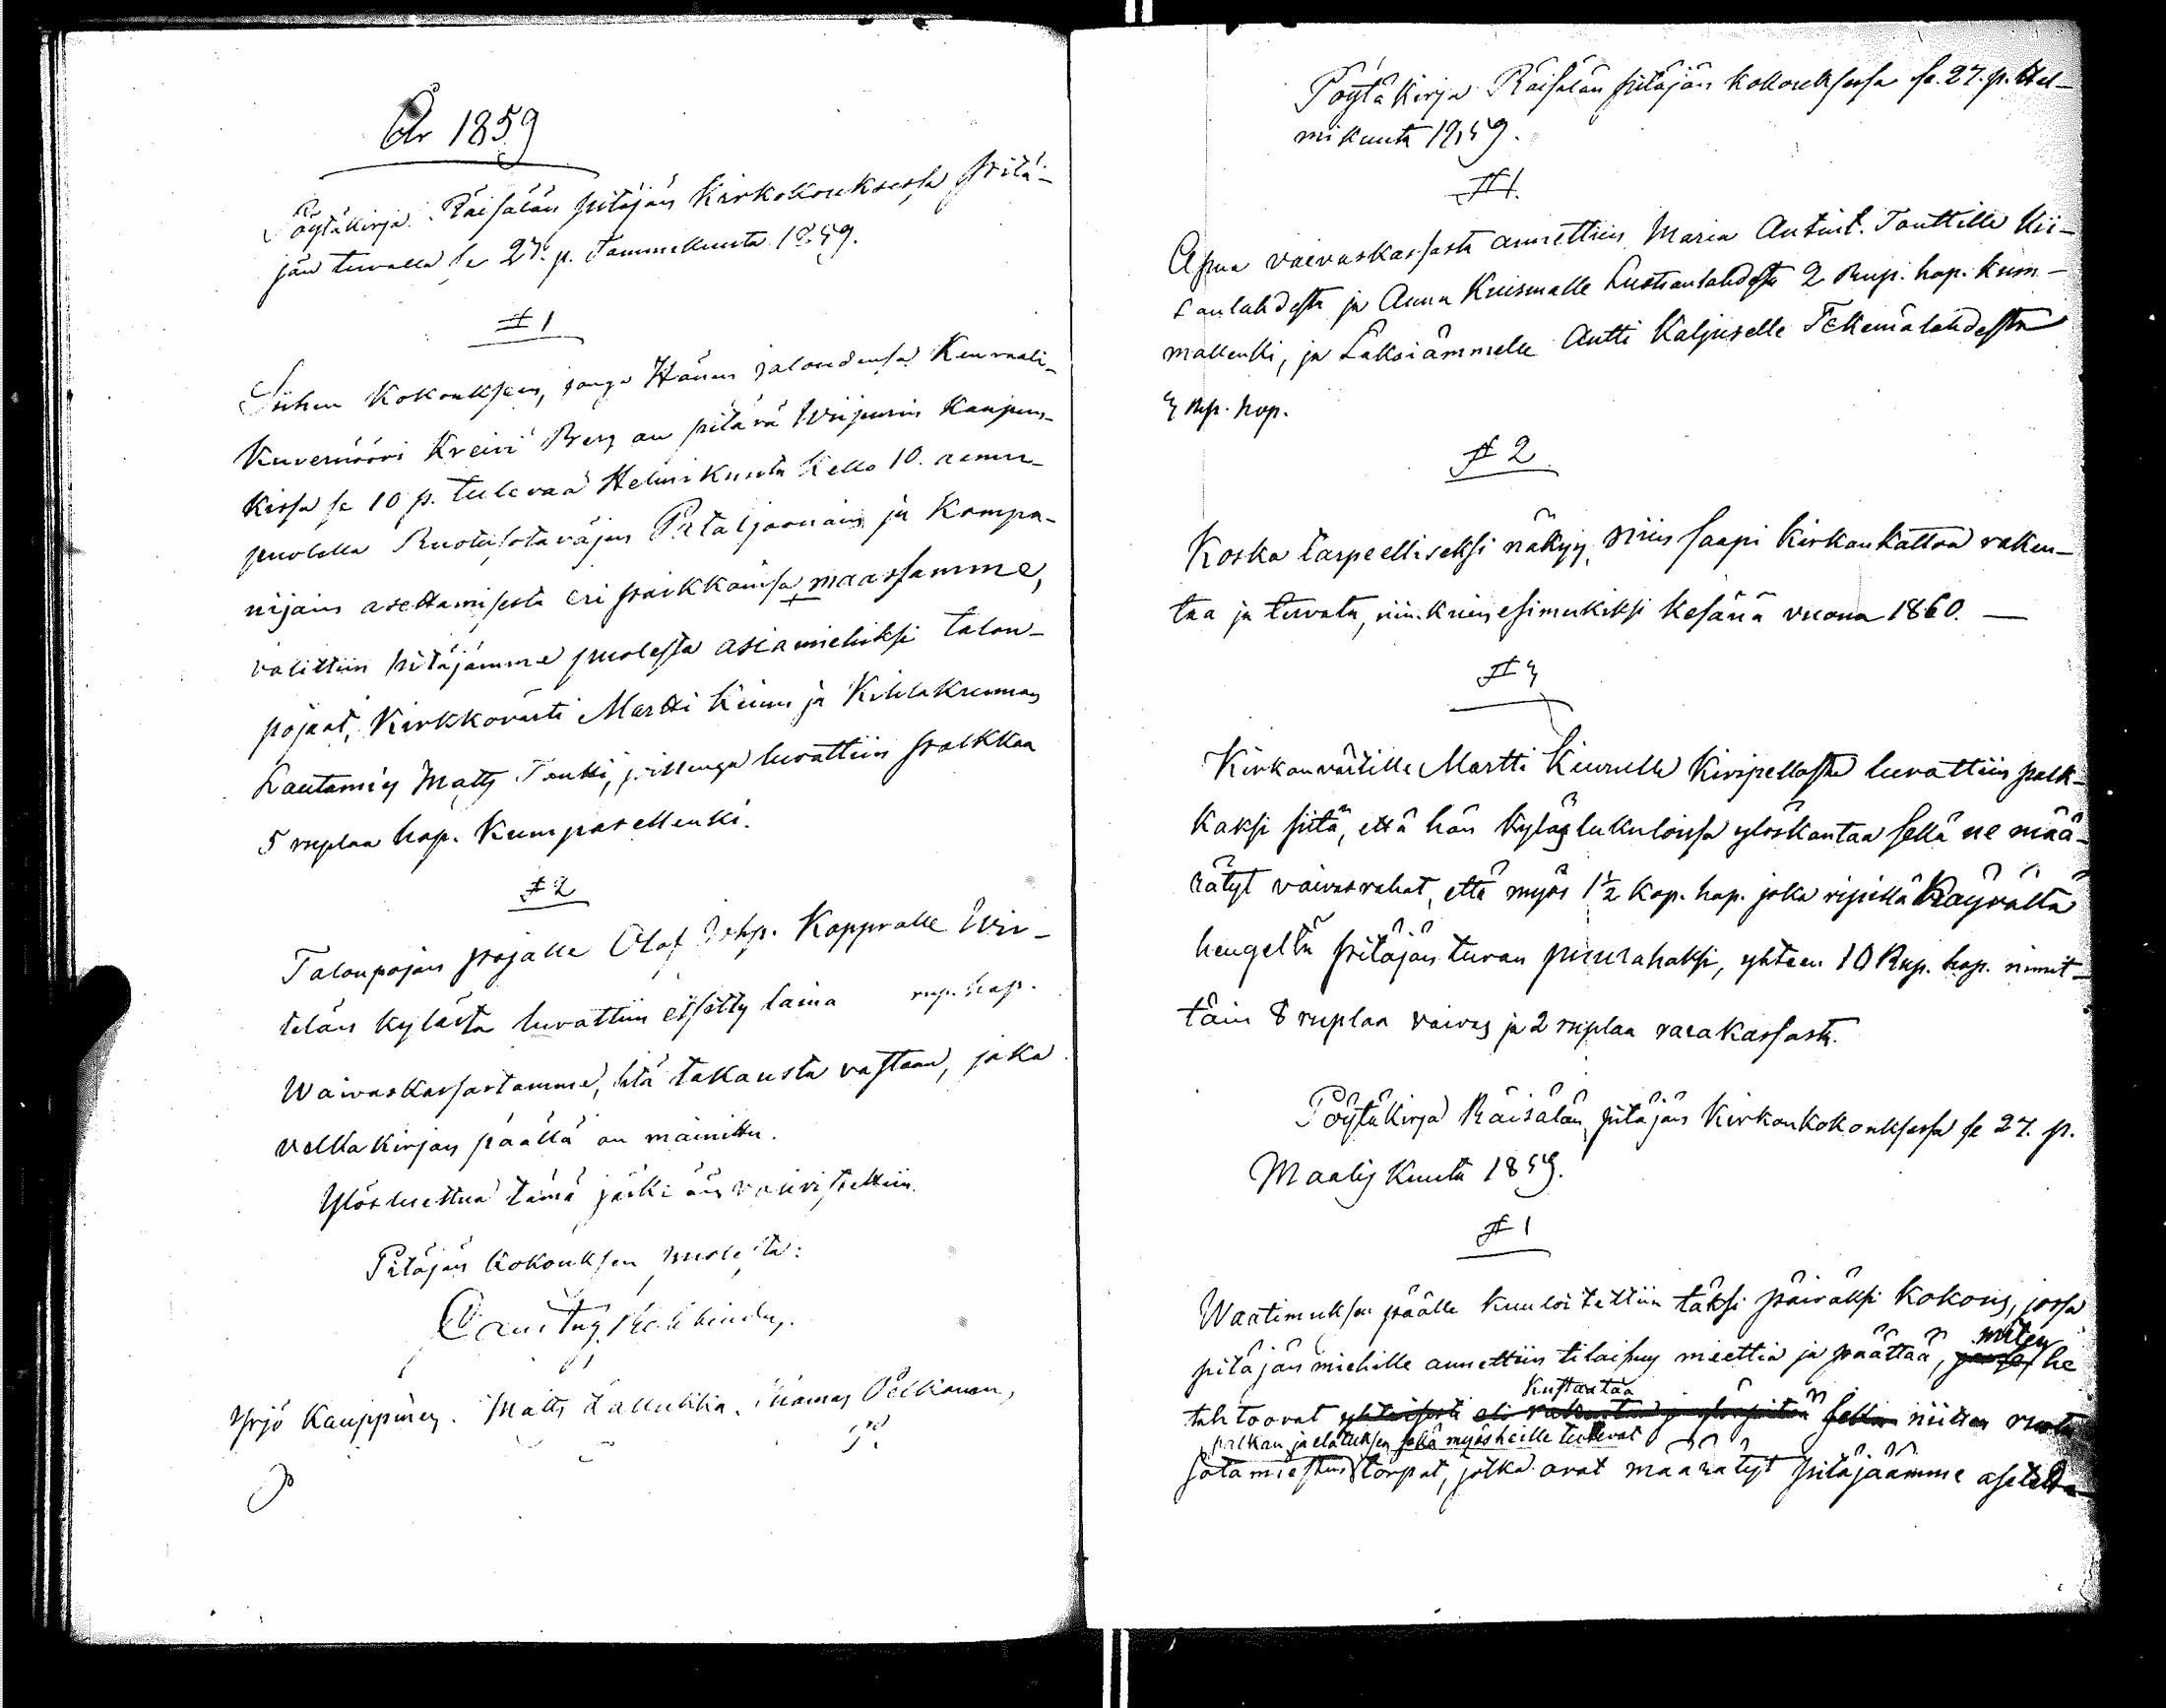 År 1859
Pöytäkirja Räisälän pitäjän Kirkokouksessa pitä-
jän tuvalla se 27. p. Tammekuuta 1859.
# 1
Siihen Kokouksen, jonga Hänen jaloudensa Kenraali-
Kuvernööri Kreivi Berg on pitävä Wiipurin Kaupun-
kissa se 10 p. tulevaa Helmikuuta Kello 10. aamu-
puolella Ruotusotaväjen Pataljoonain ja Kompa-
nijain asettamisesta eri paikkoinsa maassamme,
valittiin pitäjämme puolesta asiamiehiksi talon-
pojaat, Kirkkovärti Martti Kiuru ja Kihlakunnan
Lautamies Matts Toutti, joillenga luvattiin palkkaa
5 ruplaa hop. Kumpasellenki.
# 2
Talonpojan pojalle Olof Johp. Koppralle Wir-
telän kylästä luvattiin etsitty laina rup. hop.
Waivaskassastamme, sitä takausta vastaan, joka
velkakirjan päällä on mainittu.
Ylösluettua tämä järki ään vahvistettiin.
Pitäjän Kokouksen puolesta:
Yrjö Kauppinen. Matts Lallukka. Thomas Pelkonen,
Pöytäkirja Räisälän pitäjän kokouksessa se. 27. p. Hel-
mikuuta 1859.
# 1.
Apua vaivaskassasta annettiin Maria Antint. Touttille Sii-
anlahdesta ja Anna Kuismalle Hustianlahdesta 2 Rup. hop. kum-
mallenki, ja Antti Kaljuselle Tekemälahdesta
3 Rup. hop.
# 2
Koska tarpeelliseksi näkyy, niin saapi Kirkonkattoa raken-
taa ja tervata, niin kuin esimerkiksi Kesänä vuona 1860. —
# 3
Kirkonvärtille Martti Kiurulle Kivipellosta luvattiin palk-
kaksi siitä, että hän kyläslukuloissa ylöskantaa sekä ne mää-
rätyt vaivasrahat, että myös 1½ Kop. hop. joka ripillä Käyvältä
hengeltä pitäjän tuvan puurahaksi, yhteen 10 Rup. hop. nimit-
täin 8 ruplaa vaivas ja 2 ruplaa varakassasta.
Pöytäkirja Räisälän pitäjän Kirkonkokouksessa se 27. p.
Maalis Kuuta 1859.
# 1
Waatimuksen päälle Kuuloitettiin täksi päiväksi Kokous, jossa
pitäjän miehille annettiin tilaisuus miettiä ja päättää, miten he
tahtoovat Kustantaa niitten ruotu
palkan ja elatuksen sekä myös heille tulevat
sotamiesten torpat, jotka ovat määrätyt pitäjäämme asetetta-